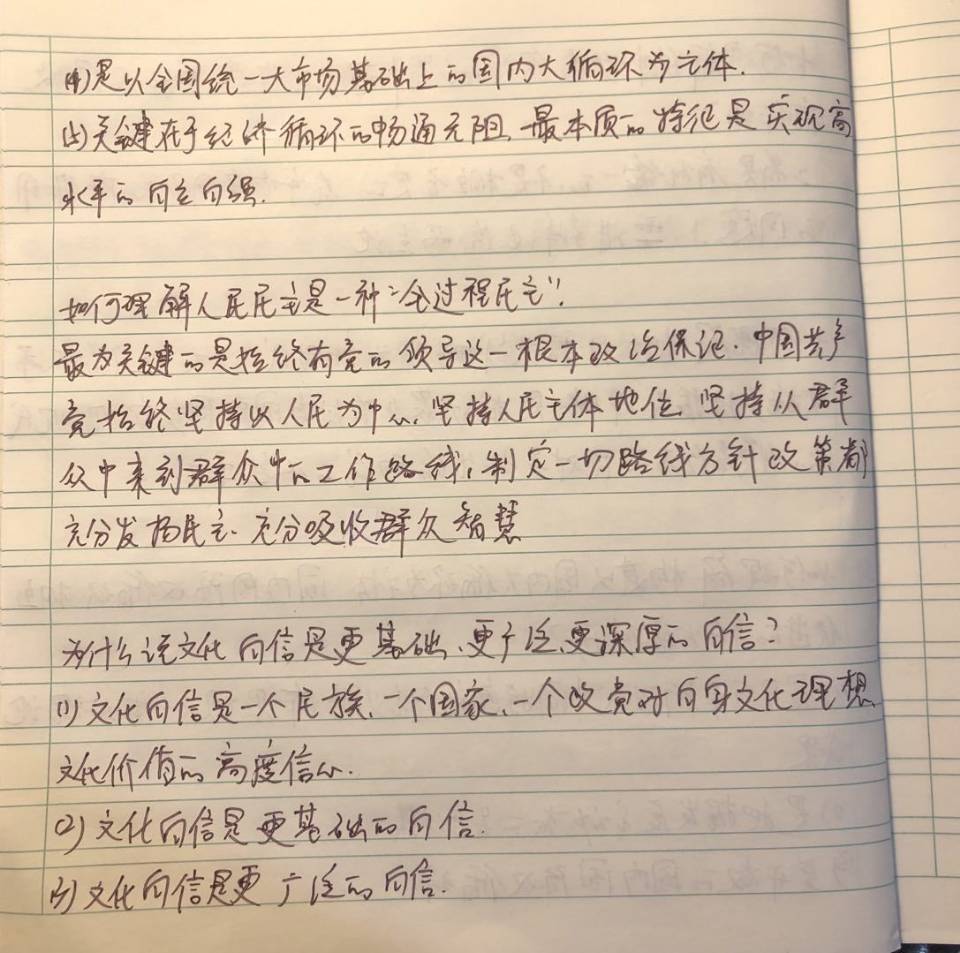 (4)是以全国统一大市场基础上的国内大循环为主体.
(5)关键在于经济循环的畅通无阻、最本质的特征是实现高
水平的自立自强.
如何理解人民民主是一种“全过程民主”.
最为关键的是始终有党的领导这一根本政治保证.中国共产
党始终坚持以人民为中心、坚持人民主体地位、坚持从群
众中来到群众中的工作路线,制定一切路线方针政策都
充分发扬民主、充分吸收群众智慧
为什么说文化自信是更基础、更广泛、更深厚的自信?
(1)文化自信是一个民族、一个国家、一个政党对自身文化理想、
文化价值的高度信心.
(2)文化自信是更基础的自信.
(3)文化自信是更广泛的自信.